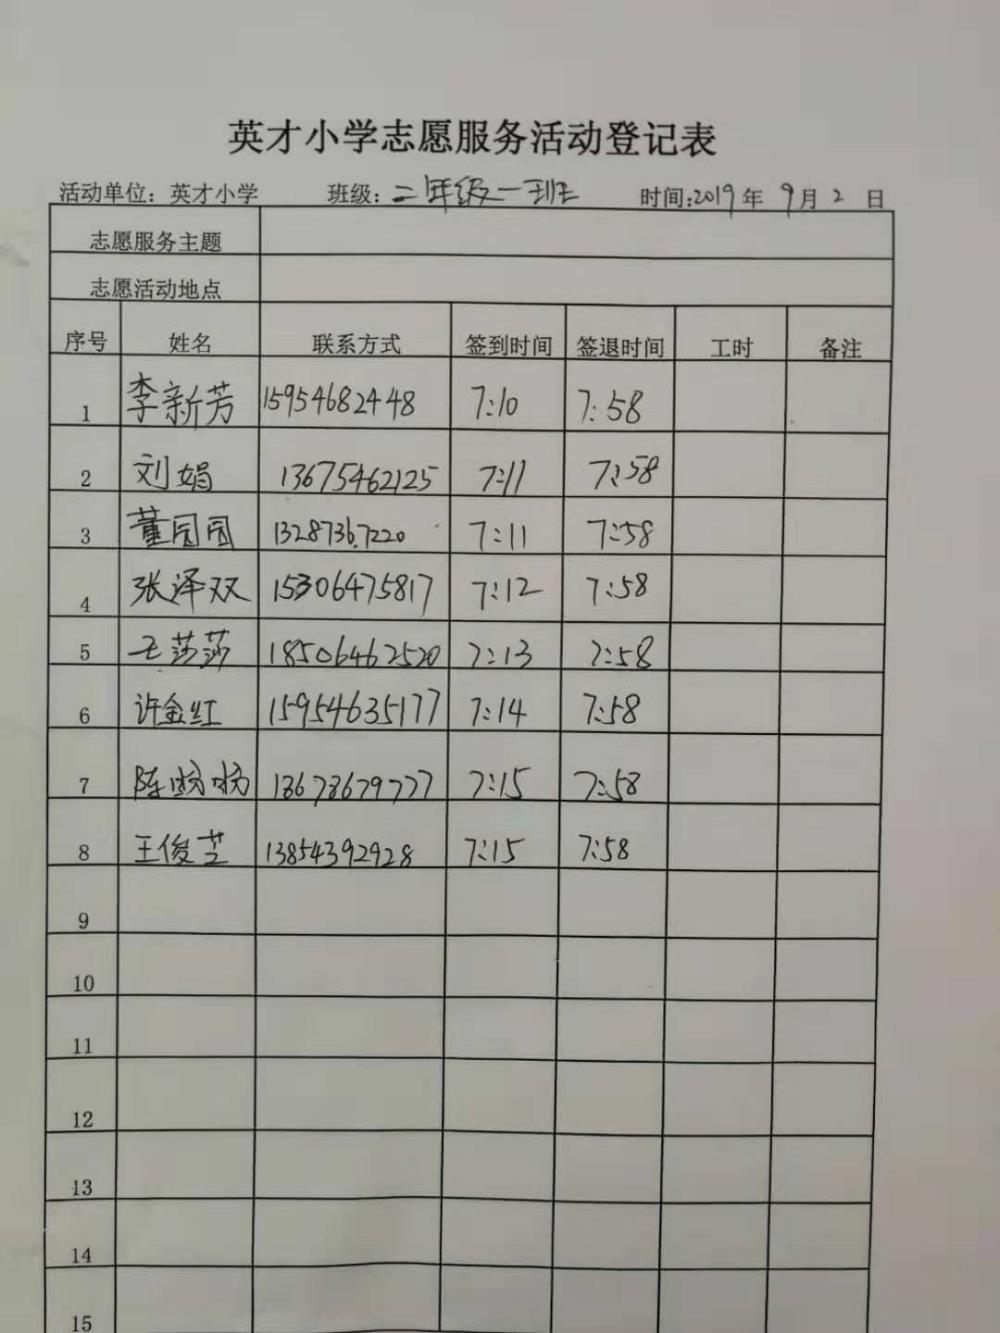 英才小学志愿服务活动登记表
活动单位：英才小学 班级：二年级一班 时间：2019年 9月 2 日
志愿服务主题
志愿活动地点
序号 姓名 联系方式 签到时间 签退时间 工时 备注
1 李新芳 15954682448 7:10 7:58
2 刘娟 13675462125 7:11 7:58
3 董园园 13287367220 7:11 7:58
4 张泽双 15306475817 7:12 7:58
5 王莎莎 18506462520 7:13 7:58
6 许金红 15954635177 7:14 7:58
7 陈 7:15 7:58
8 王俊芝 13854392928 7:15 7:58
9
10
11
12
13
14
15